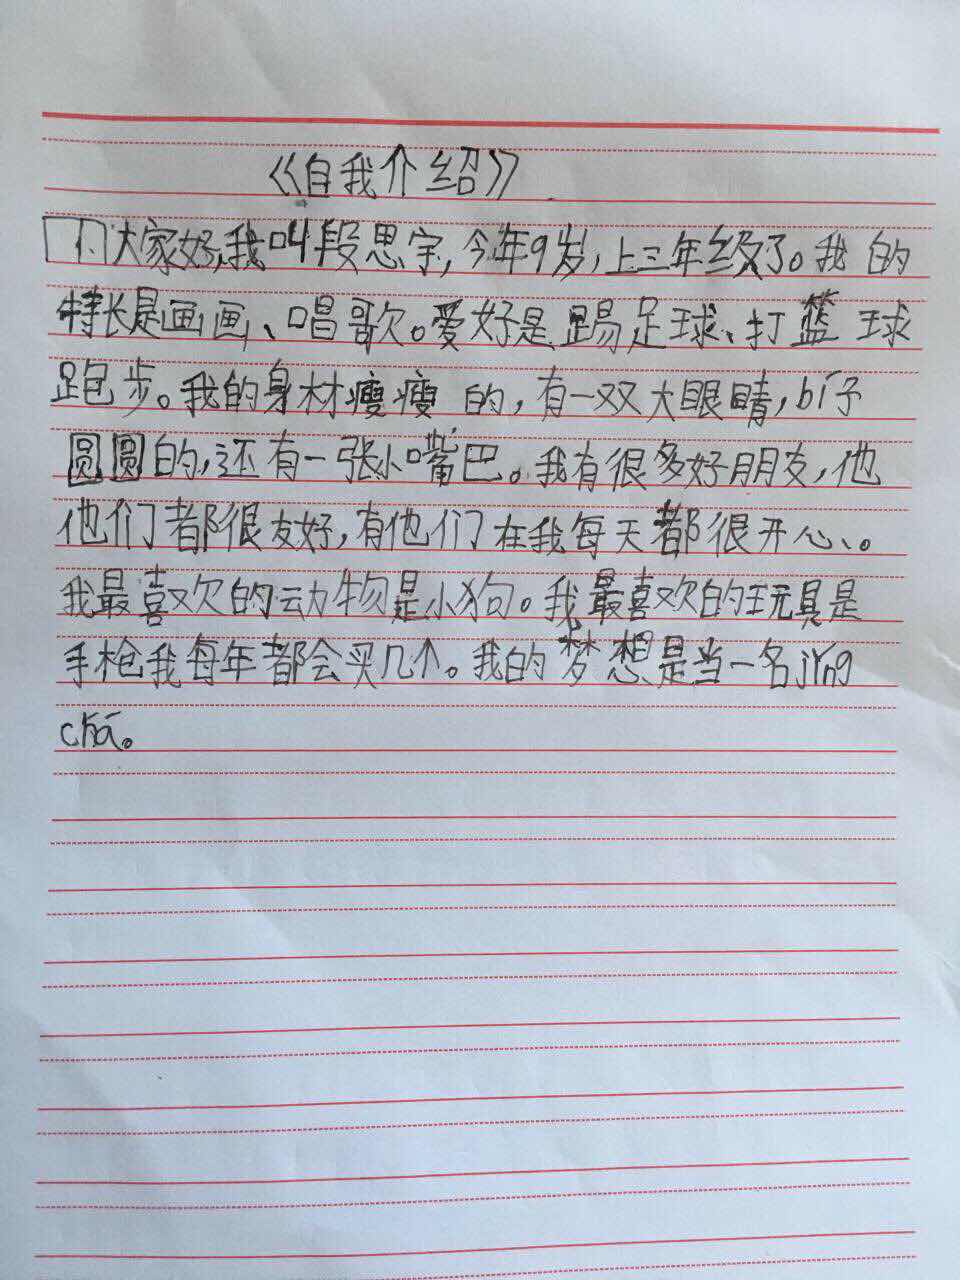 《自我介绍》
大家好,我叫段思宇,今年9岁,上三年级了。我的
特长是画画、唱歌。爱好是踢足球、打篮球
跑步。我的身材瘦瘦的,有一双大眼睛,bí子
圆圆的,还有一张小嘴巴。我有很多好朋友,他
他们都很友好,有他们在我每天都很开心、。
我最喜欢的动物是小狗。我最喜欢的玩具是
手枪我每年都会买几个。我的梦想是当一名jǐng
chá。